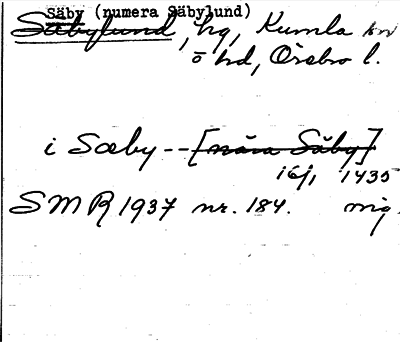 Säby (numera Säbylund)
Säbylund, hg, Kumla sn
ö hd, Örebro l.
i Sæby -- [nära Säby]
16/1 1435
SMR 1937 nr. 184. mig.